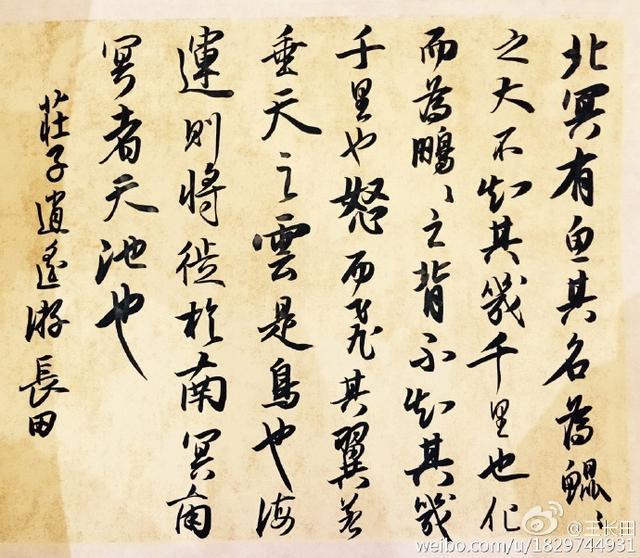 北冥有鱼其名為鲲〻
之大不知其幾千里也化
而為鵬〻之背不知其幾
千里也怒而飛其翼若
垂天之雲是鳥也海
運則將徙於南冥南
冥者天池也
莊子逍遙游長田
@王长田
weibo.com/u/1829744931